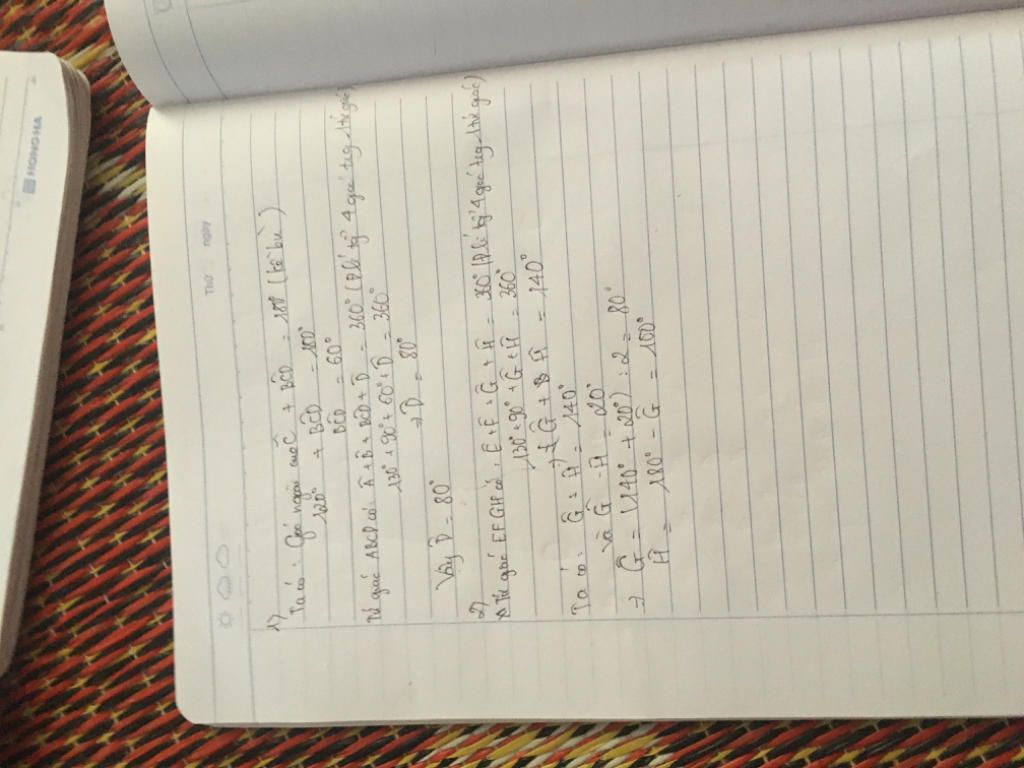 HONG HA
Thứ ngày
1)
Ta có : Góc ngoài của Ĉ + BĈD = 180° (kề bù)
120° + BĈD = 180°
BĈD = 60°
Tứ giác ABCD có: Â + B̂ + BĈD + D̂ = 360° (Đlí tg² 4 góc tng tứ giác)
130° + 90° + 60° + D̂ = 360°
→ D̂ = 80°
Vậy D̂ = 80°
2)
Tứ giác EFGH có: Ê + F̂ + Ĝ + Ĥ = 360° (Đlí tg² 4 góc tng tứ giác)
130° + 90° + Ĝ + Ĥ = 360°
→ Ĝ + Ĥ = 140°
Ta có : Ĝ + Ĥ = 140°
và Ĝ - Ĥ = 20°
→ Ĝ = (140° + 20°) : 2 = 80°
Ĥ = 180° - Ĝ = 100°